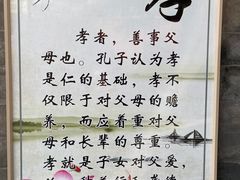 孝
孝者，善事父
母也。孔子认为孝
是仁的基础，孝不
仅限于对父母的赡
养，而应着重对父
母和长辈的尊重。
孝就是子女对父爱，